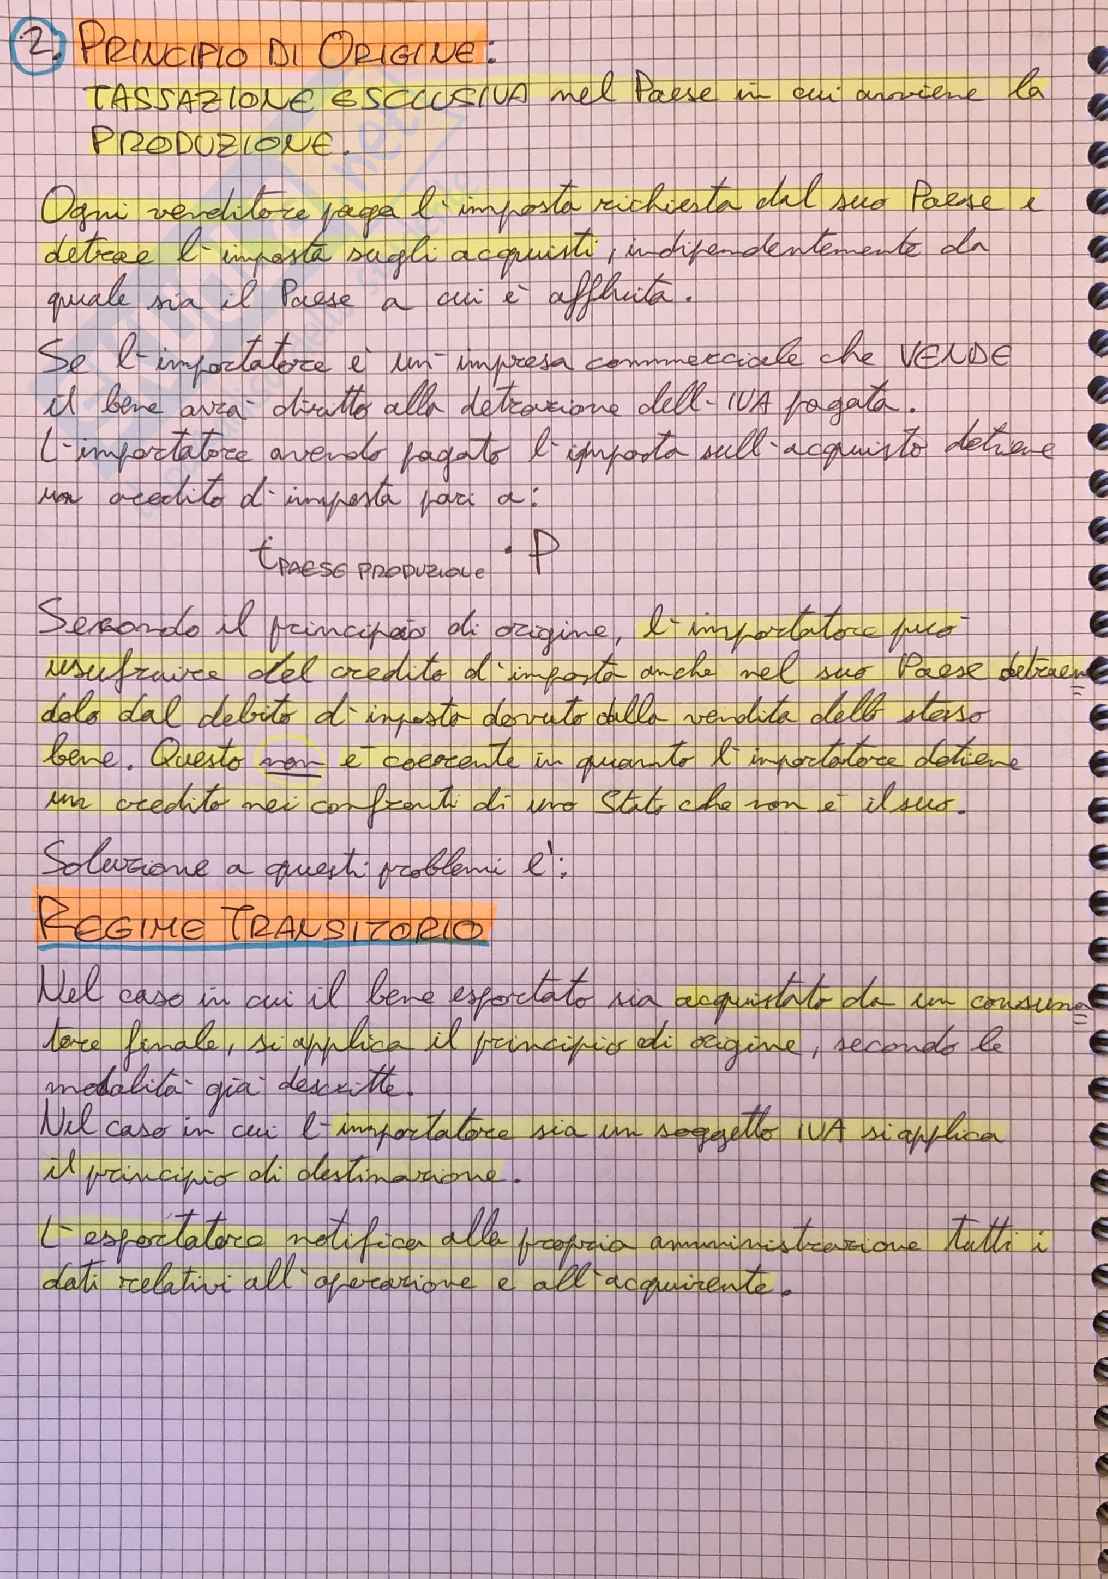 2. PRINCIPIO DI ORIGINE:
TASSAZIONE ESCLUSIVA nel Paese in cui avviene la
PRODUZIONE.
Ogni venditore paga l'imposta richiesta dal suo Paese e
detrae l'imposta sugli acquisti, indipendentemente da
quale sia il Paese a cui è affluita.
Se l'importatore è un'impresa commerciale che VENDE
il bene avrà diritto alla detrazione dell'IVA pagata.
L'importatore avendo pagato l'imposta sull'acquisto detiene
un credito d'imposta pari a:
t PAESE PRODUZIONE · P
Secondo il principio di origine, l'importatore può
usufruire del credito d'imposta anche nel suo Paese detraen=
dolo dal debito d'imposta dovuto dalla vendita dello stesso
bene. Questo non è coerente in quanto l'importatore detiene
un credito nei confronti di uno Stato che non è il suo.
Soluzione a questi problemi è:
REGIME TRANSITORIO
Nel caso in cui il bene esportato sia acquistato da un consuma=
tore finale, si applica il principio di origine, secondo le
modalità già descritte.
Nel caso in cui l'importatore sia un soggetto IVA si applica
il principio di destinazione.
L'esportatore notifica alla propria amministrazione tutti i
dati relativi all'operazione e all'acquirente.